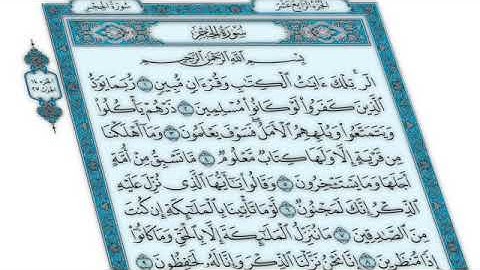 سُورَةُ الحِجْرِ
الجُزْءُ الرَّابِعَ عَشَرَ
سُورَةُ الحِجْرِ
بِسْمِ اللَّهِ الرَّحْمَٰنِ الرَّحِيمِ
الٓر تِلْكَ ءَايَٰتُ ٱلْكِتَٰبِ وَقُرْءَانٍ مُّبِينٍ ١ رُّبَمَا يَوَدُّ
ٱلَّذِينَ كَفَرُوا۟ لَوْ كَانُوا۟ مُسْلِمِينَ ٢ ذَرْهُمْ يَأْكُلُوا۟
وَيَتَمَتَّعُوا۟ وَيُلْهِهِمُ ٱلْأَمَلُ فَسَوْفَ يَعْلَمُونَ ٣ وَمَآ أَهْلَكْنَا
مِن قَرْيَةٍ إِلَّا وَلَهَا كِتَابٌ مَّعْلُومٌ ٤ مَّا تَسْبِقُ مِنْ أُمَّةٍ
أَجَلَهَا وَمَا يَسْتَـْٔخِرُونَ ٥ وَقَالُوا۟ يَٰٓأَيُّهَا ٱلَّذِى نُزِّلَ عَلَيْهِ
ٱلذِّكْرُ إِنَّكَ لَمَجْنُونٌ ٦ لَّوْ مَا تَأْتِينَا بِٱلْمَلَٰٓئِكَةِ إِن كُنتَ
مِنَ ٱلصَّٰدِقِينَ ٧ مَا نُنَزِّلُ ٱلْمَلَٰٓئِكَةَ إِلَّا بِٱلْحَقِّ وَمَا كَانُوٓا۟
إِذًا مُّنظَرِينَ ٨ إِنَّا نَحْنُ نَزَّلْنَا ٱلذِّكْرَ وَإِنَّا لَهُۥ لَحَٰفِظُونَ ٩